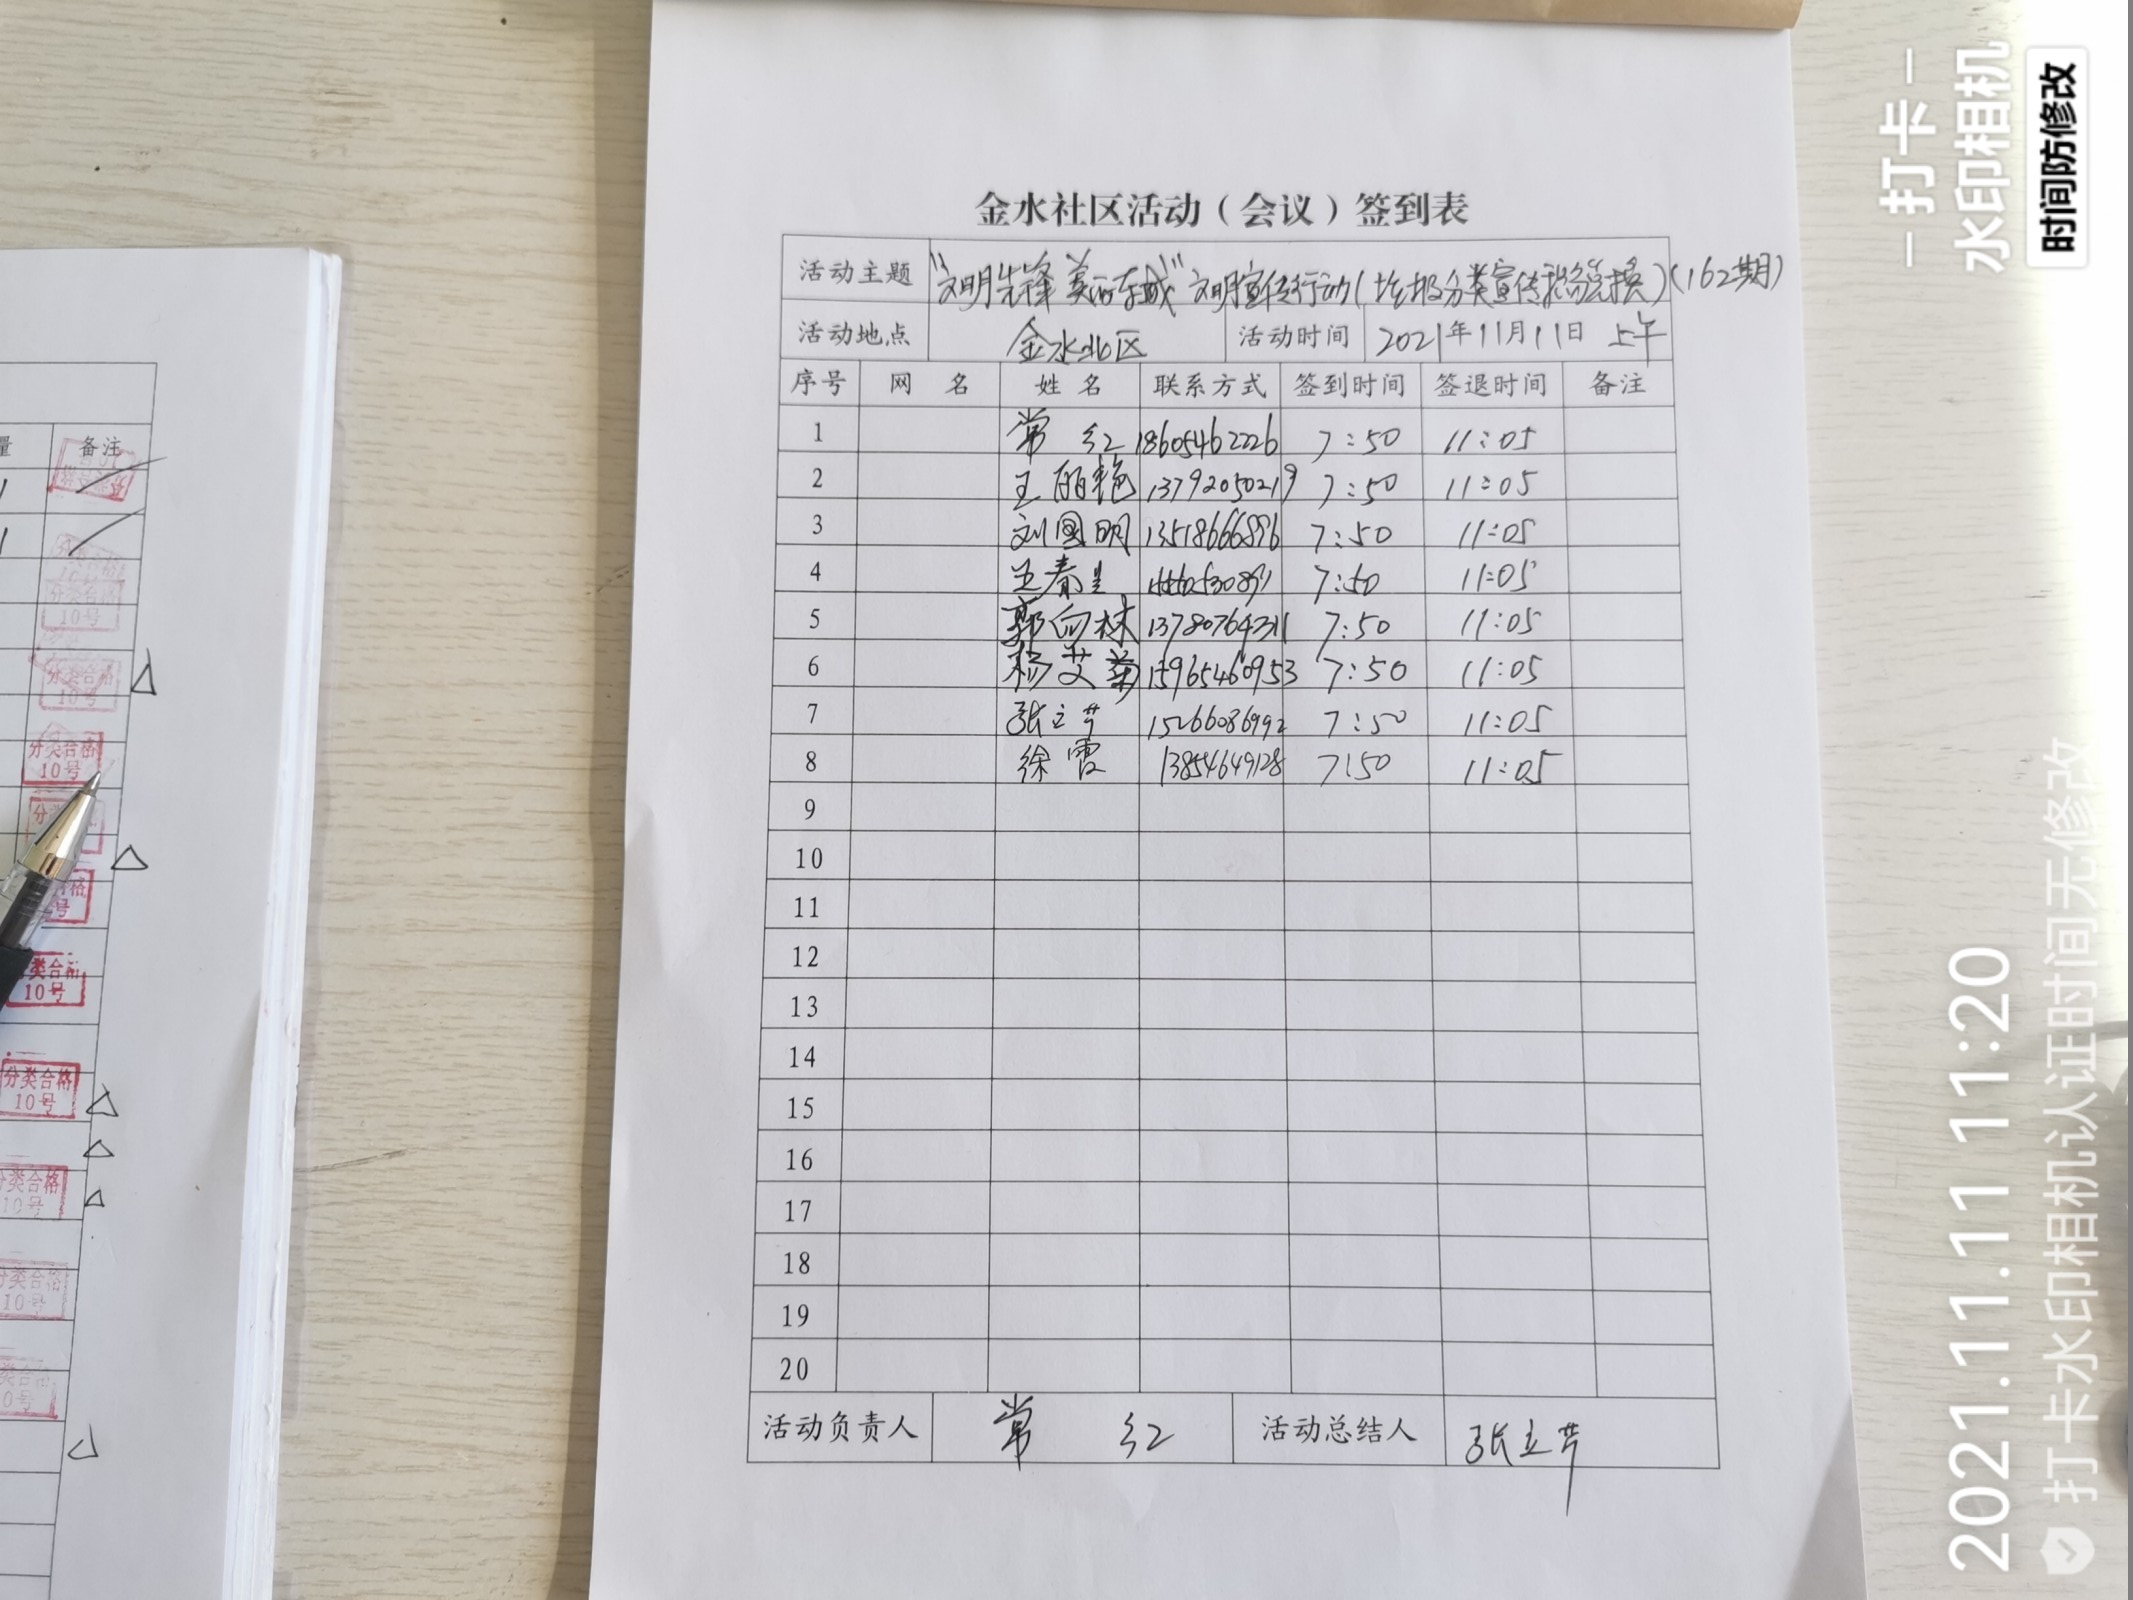 金水社区活动（会议）签到表
活动主题 "文明先锋 美丽东城" 文明宣传行动(垃圾分类宣传积分兑换)(162期)
活动地点 金水北区 活动时间 2021年11月11日 上午
序号 网 名 姓 名 联系方式 签到时间 签退时间 备注
1 常 红 18605462226 7:50 11:05
2 王丽艳 13792050219 7:50 11:05
3 刘国明 13518666896 7:50 11:05
4 王春 7:50 11:05
5 郭向林 7:50 11:05
6 杨艾菊 15965460953 7:50 11:05
7 张立芹 15266086992 7:50 11:05
8 徐霞 13854649128 7:50 11:05
9
10
11
12
13
14
15
16
17
18
19
20
活动负责人 常 红 活动总结人 张立芹
量 备注
分类合格
10号
分类合格
10号
分类合格
10号
分
合格
号
类合格
10号
分类合格
10号
分类合格
10号
分类合格
10号
类合格
0号
打卡
水印相机
时间防修改
2021.11.11 11:20
打卡水印相机认证时间无修改